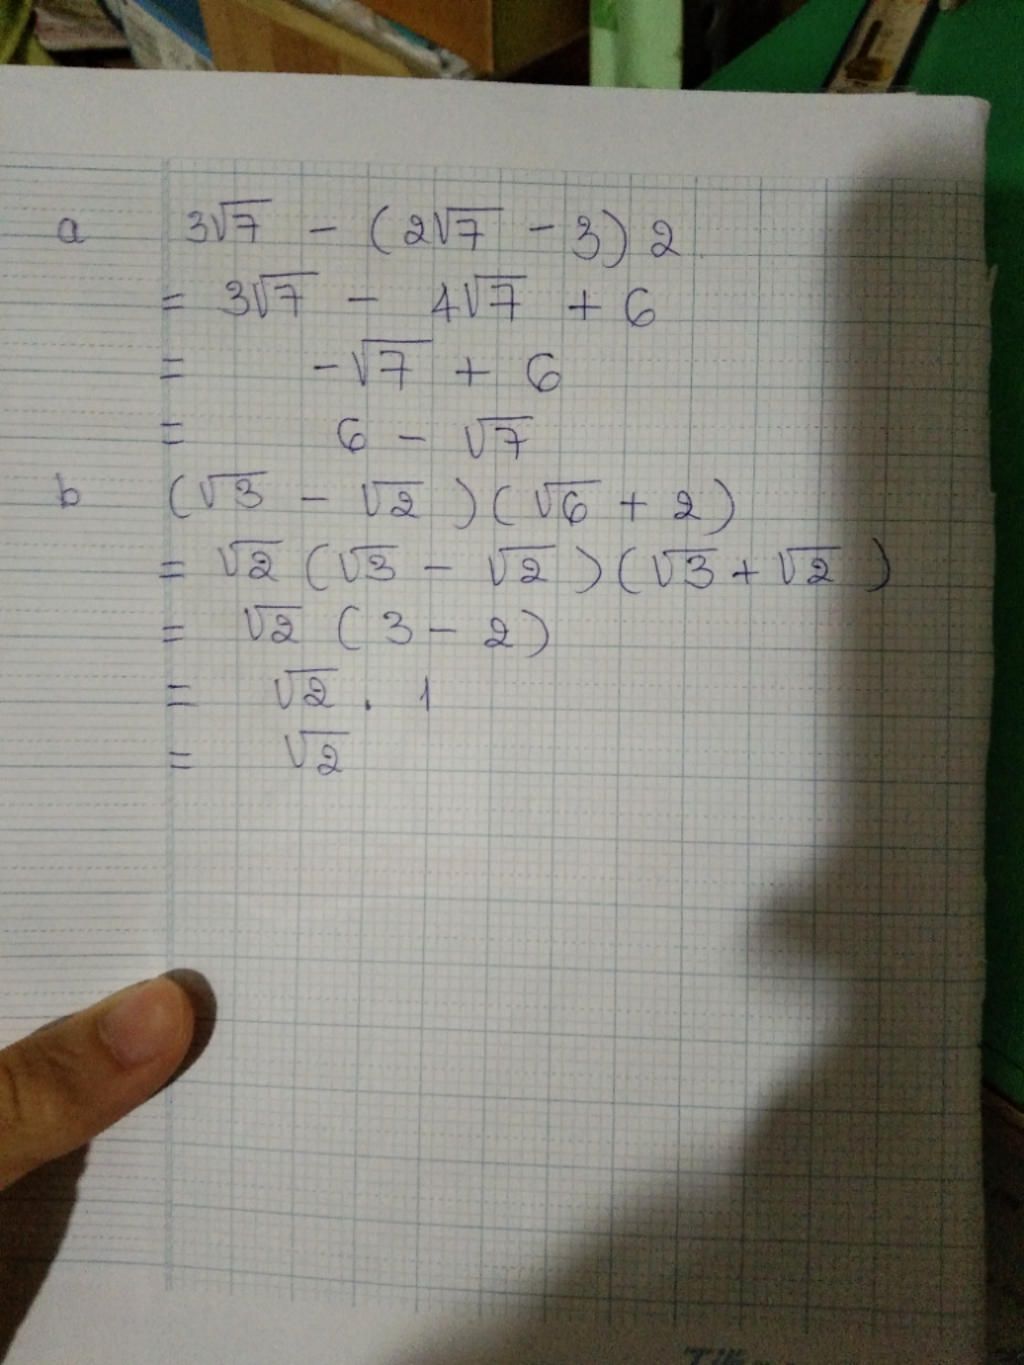 a 3√7 - (2√7 - 3) 2
= 3√7 - 4√7 + 6
= -√7 + 6
= 6 - √7
b (√3 - √2)(√6 + 2)
= √2 (√3 - √2)(√3 + √2)
= √2 (3 - 2)
= √2 . 1
= √2